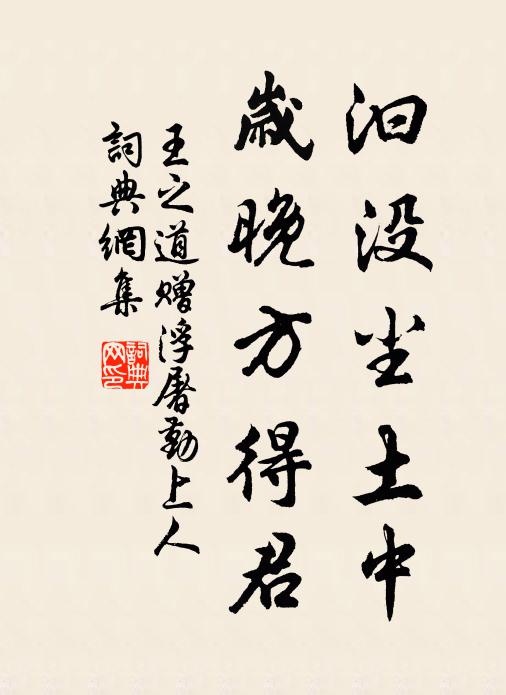 汩没尘土中
歲晚方得君
王之道赠浮屠勤上人
詞典網集
詞典網印